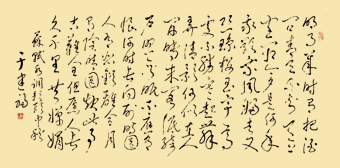 明月幾時有把酒
問青天不知天上
宮闕今夕是何年
我欲乘風歸去又
恐瓊樓玉宇高
處不勝寒起舞
弄清影何似在人
間轉朱閣低綺
戶照無眠不應有
恨何事長向別時圓
人有悲歡離合月
有陰晴圓缺此事
古難全但願人長
久千里共嬋娟
蘇軾水調歌頭中秋